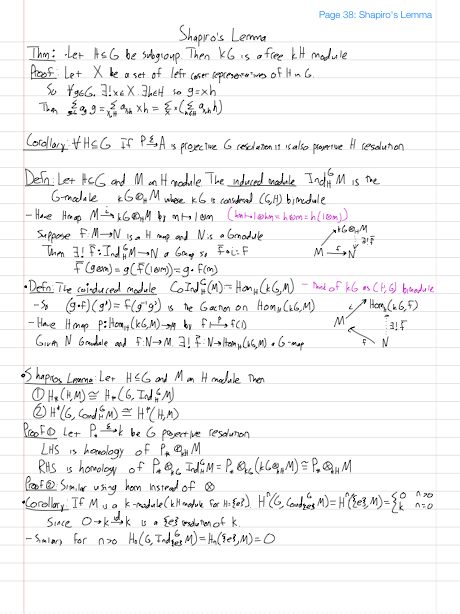 Page 38: Shapiro's Lemma
Shapiro's Lemma
Thm: · Let H≤G be subgroup. Then kG is a free kH module
Proof: Let X be a set of left coset representatives of H in G.
So ∀g∈G, ∃!x∈X, ∃!h∈H so g=xh
Then Σ a_g g = Σ a_{xh} xh = Σ x(Σ a_{xh} h)
Corollary: ∀H≤G If P →ε A is projective G resolution it is also projective H resolution
Defn: Let H≤G and M an H module The induced module Ind_H^G M is the
G-module kG⊗_H M where kG is considered (G,H) bimodule
- Have H map M →i kG⊗_H M by m↦1⊗m (hm↦1⊗hm=h⊗m=h(1⊗m))
Suppose f: M→N is a H map and N is a G module
kG⊗_H M
Then ∃! f̄: Ind_H^G M→N a G map so f̄∘i=f
M →f N ∃! f̄
f̄(g⊗m)=g(f̄(1⊗m))=g·f(m)
· Defn: The coinduced module CoInd_H^G(M)=Hom_H(kG,M) - think of kG as (H,G) bimodule
- So (g·f)(g')=f(g'g) is the G action on Hom_H(kG,M)
- Have H map p: Hom_H(kG,M)→M by f ↦ f(1)
Given N G module and f:N→M. ∃! f̄: N→Hom_H(kG,M) a G-map
M ∃! f̄
f N
· Shapiros Lemma: Let H≤G and M an H module Then
① H_*(H,M) ≅ H_*(G, Ind_H^G M)
② H^*(G, Coind_H^G M) ≅ H^*(H,M)
Proof ① Let P_* →ε k be G projective resolution
LHS is homology of P_* ⊗_{kH} M
RHS is homology of P_* ⊗_{kG} Ind_H^G M = P_* ⊗_{kG} (kG⊗_{kH} M) ≅ P_* ⊗_{kH} M
Proof ②: Similar using hom instead of ⊗
· Corollary: If M is a k-module (kH module for H={e}). H^n(G, Coind_{{e}}^G M)=H^n({e},M)={0 n>0
k n=0
Since 0→k →id k is a {e} resolution of k.
- Similarly for n>0 H_n(G, Ind_{{e}}^G M)=H_n({e},M)=0